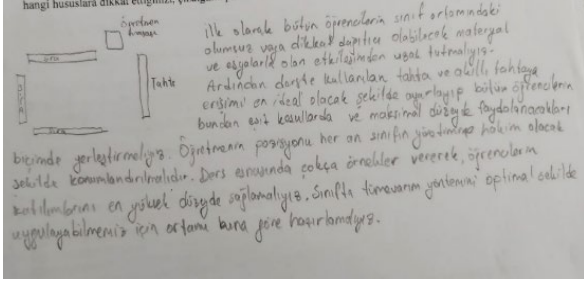 hangi hususlara dikkat
Öğretmen
Sıra
Sıra
Tahta
Sıra
ilk olarak bütün öğrencilerin sınıf ortamındaki
olumsuz veya dikkat dağıtıcı olabilecek materyal
ve eşyalarla olan etkileşimden uzak tutmalıyız.
Ardından derste kullanılan tahta ve akıllı tahtaya
erişimi en ideal olacak şekilde ayarlayıp bütün öğrencilerin
bundan eşit koşullarda ve maksimal düzeyde faydalanacakları
biçimde yerleştirmeliyiz. Öğretmenin pozisyonu her an sınıfın yönetimine hakim olacak
şekilde konumlandırılmalıdır. Ders esnasında çokça örnekler vererek, öğrencilerin
katılımlarını en yüksek düzeyde sağlamalıyız. Sınıfta tümevarım yöntemini optimal şekilde
uygulayabilmemiz için ortamı buna göre hazırlamalıyız.